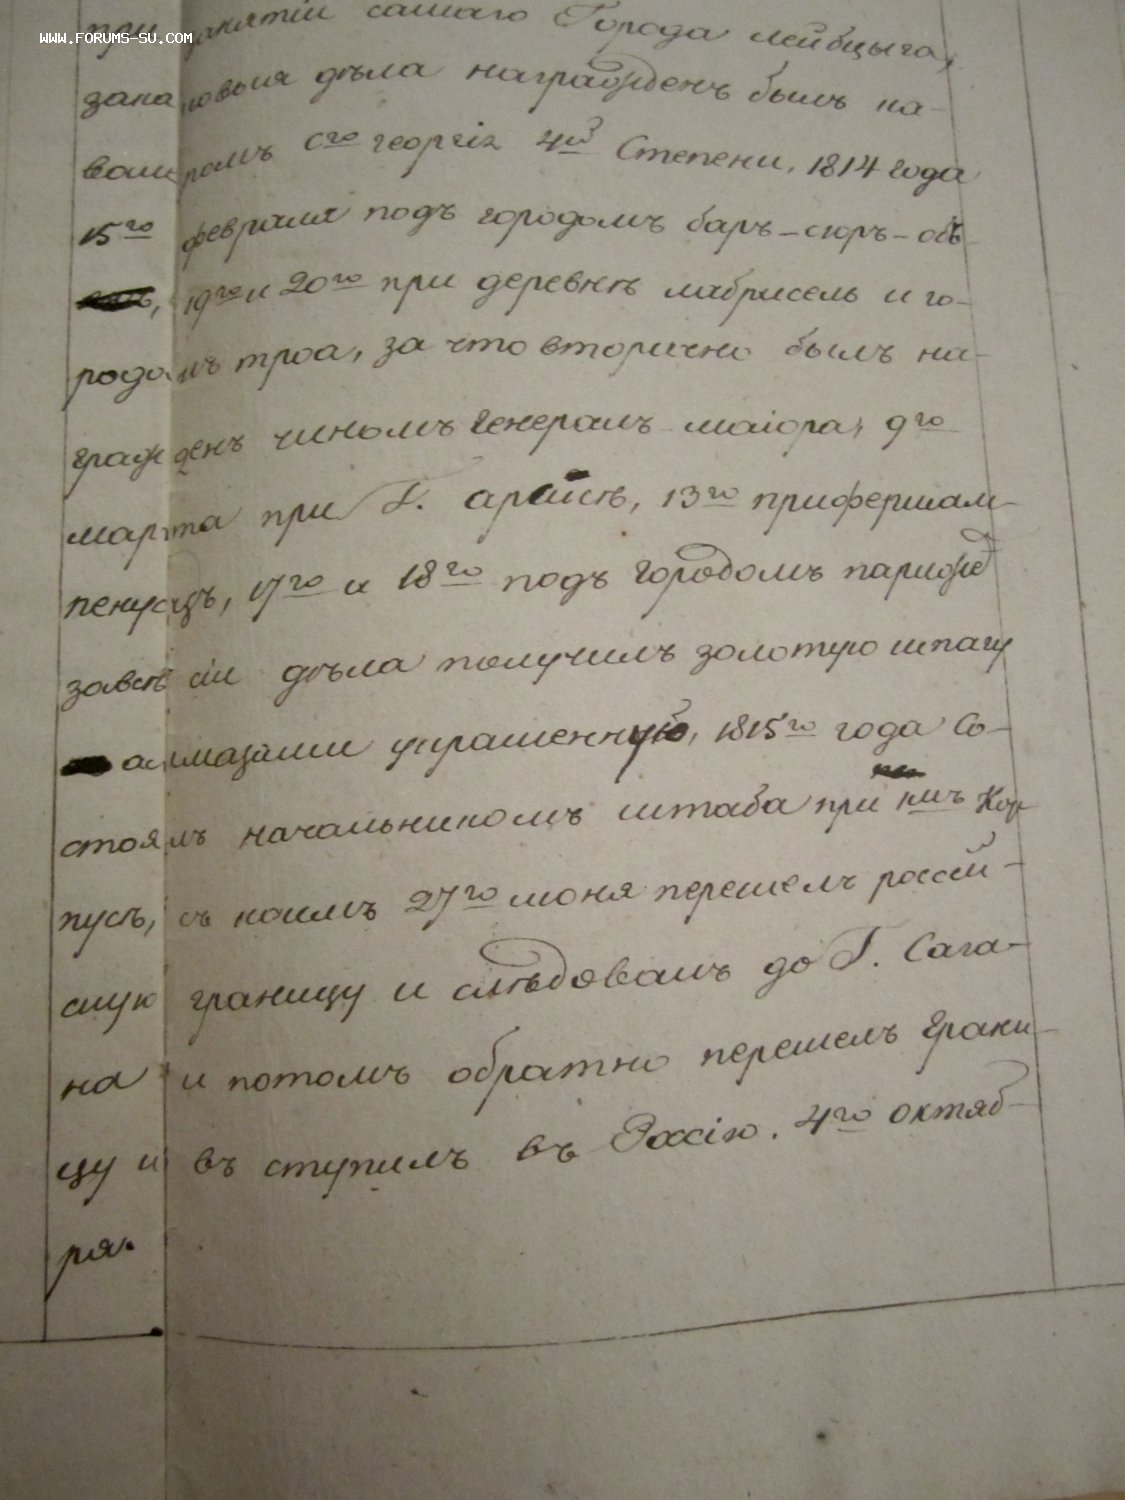 WWW.FORUMS-SU.COM
при занятіи самаго Города лейбцыга,
зака ковыя дѣла награжденъ былъ ка-
валеромъ Сго георгія 4й Степени, 1814 года
15го февраля подъ городомъ баръ-сюръ-объ
19го и 20го при деревнѣ лабрисель и го-
родомъ троа, за что вторично былъ на-
гражденъ чиномъ генералъ маіора, 9го
марта при Г. арсисѣ, 13го прифершам-
пенуазъ, 17го и 18го подъ городомъ парижъ
завсѣ сіи дѣла получилъ золотую шпагу
алмазами украшенную, 1815го года Со-
стоялъ начальникомъ штаба при кмъ Кор
пусѣ, съ коимъ 27го июня перешелъ россій-
скую границу и слѣдовалъ до Г. Сага-
на и потомъ обратно перешелъ грани-
цу и въ ступилъ въ Россію. 4го октяб-
ря.